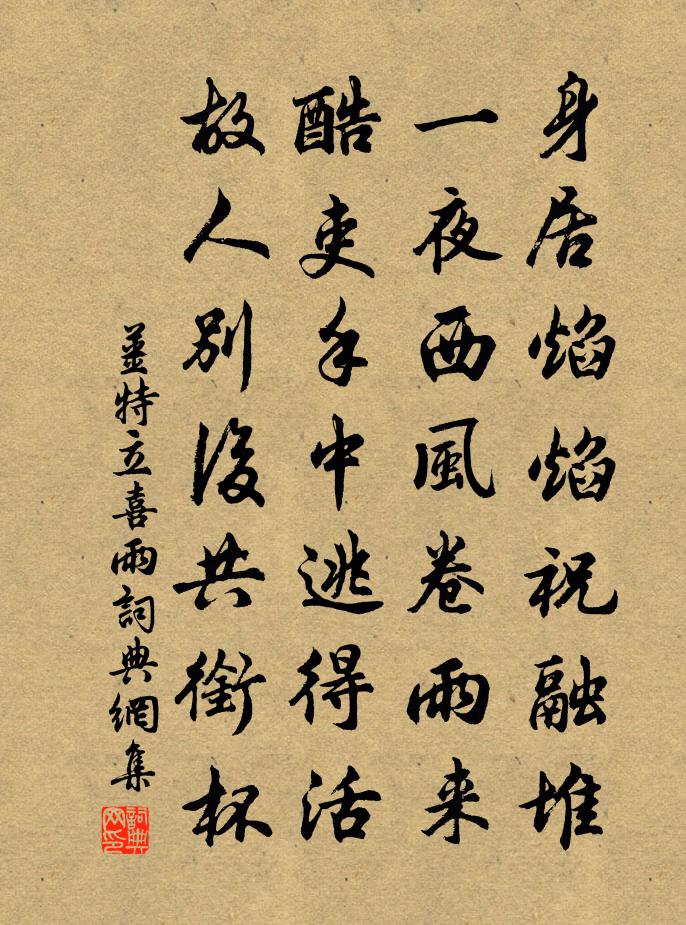 身居焰焰祝融堆
一夜西風卷雨来
酷吏手中逃得活
故人別後共銜杯
姜特立喜雨詞典網集
詞典网印